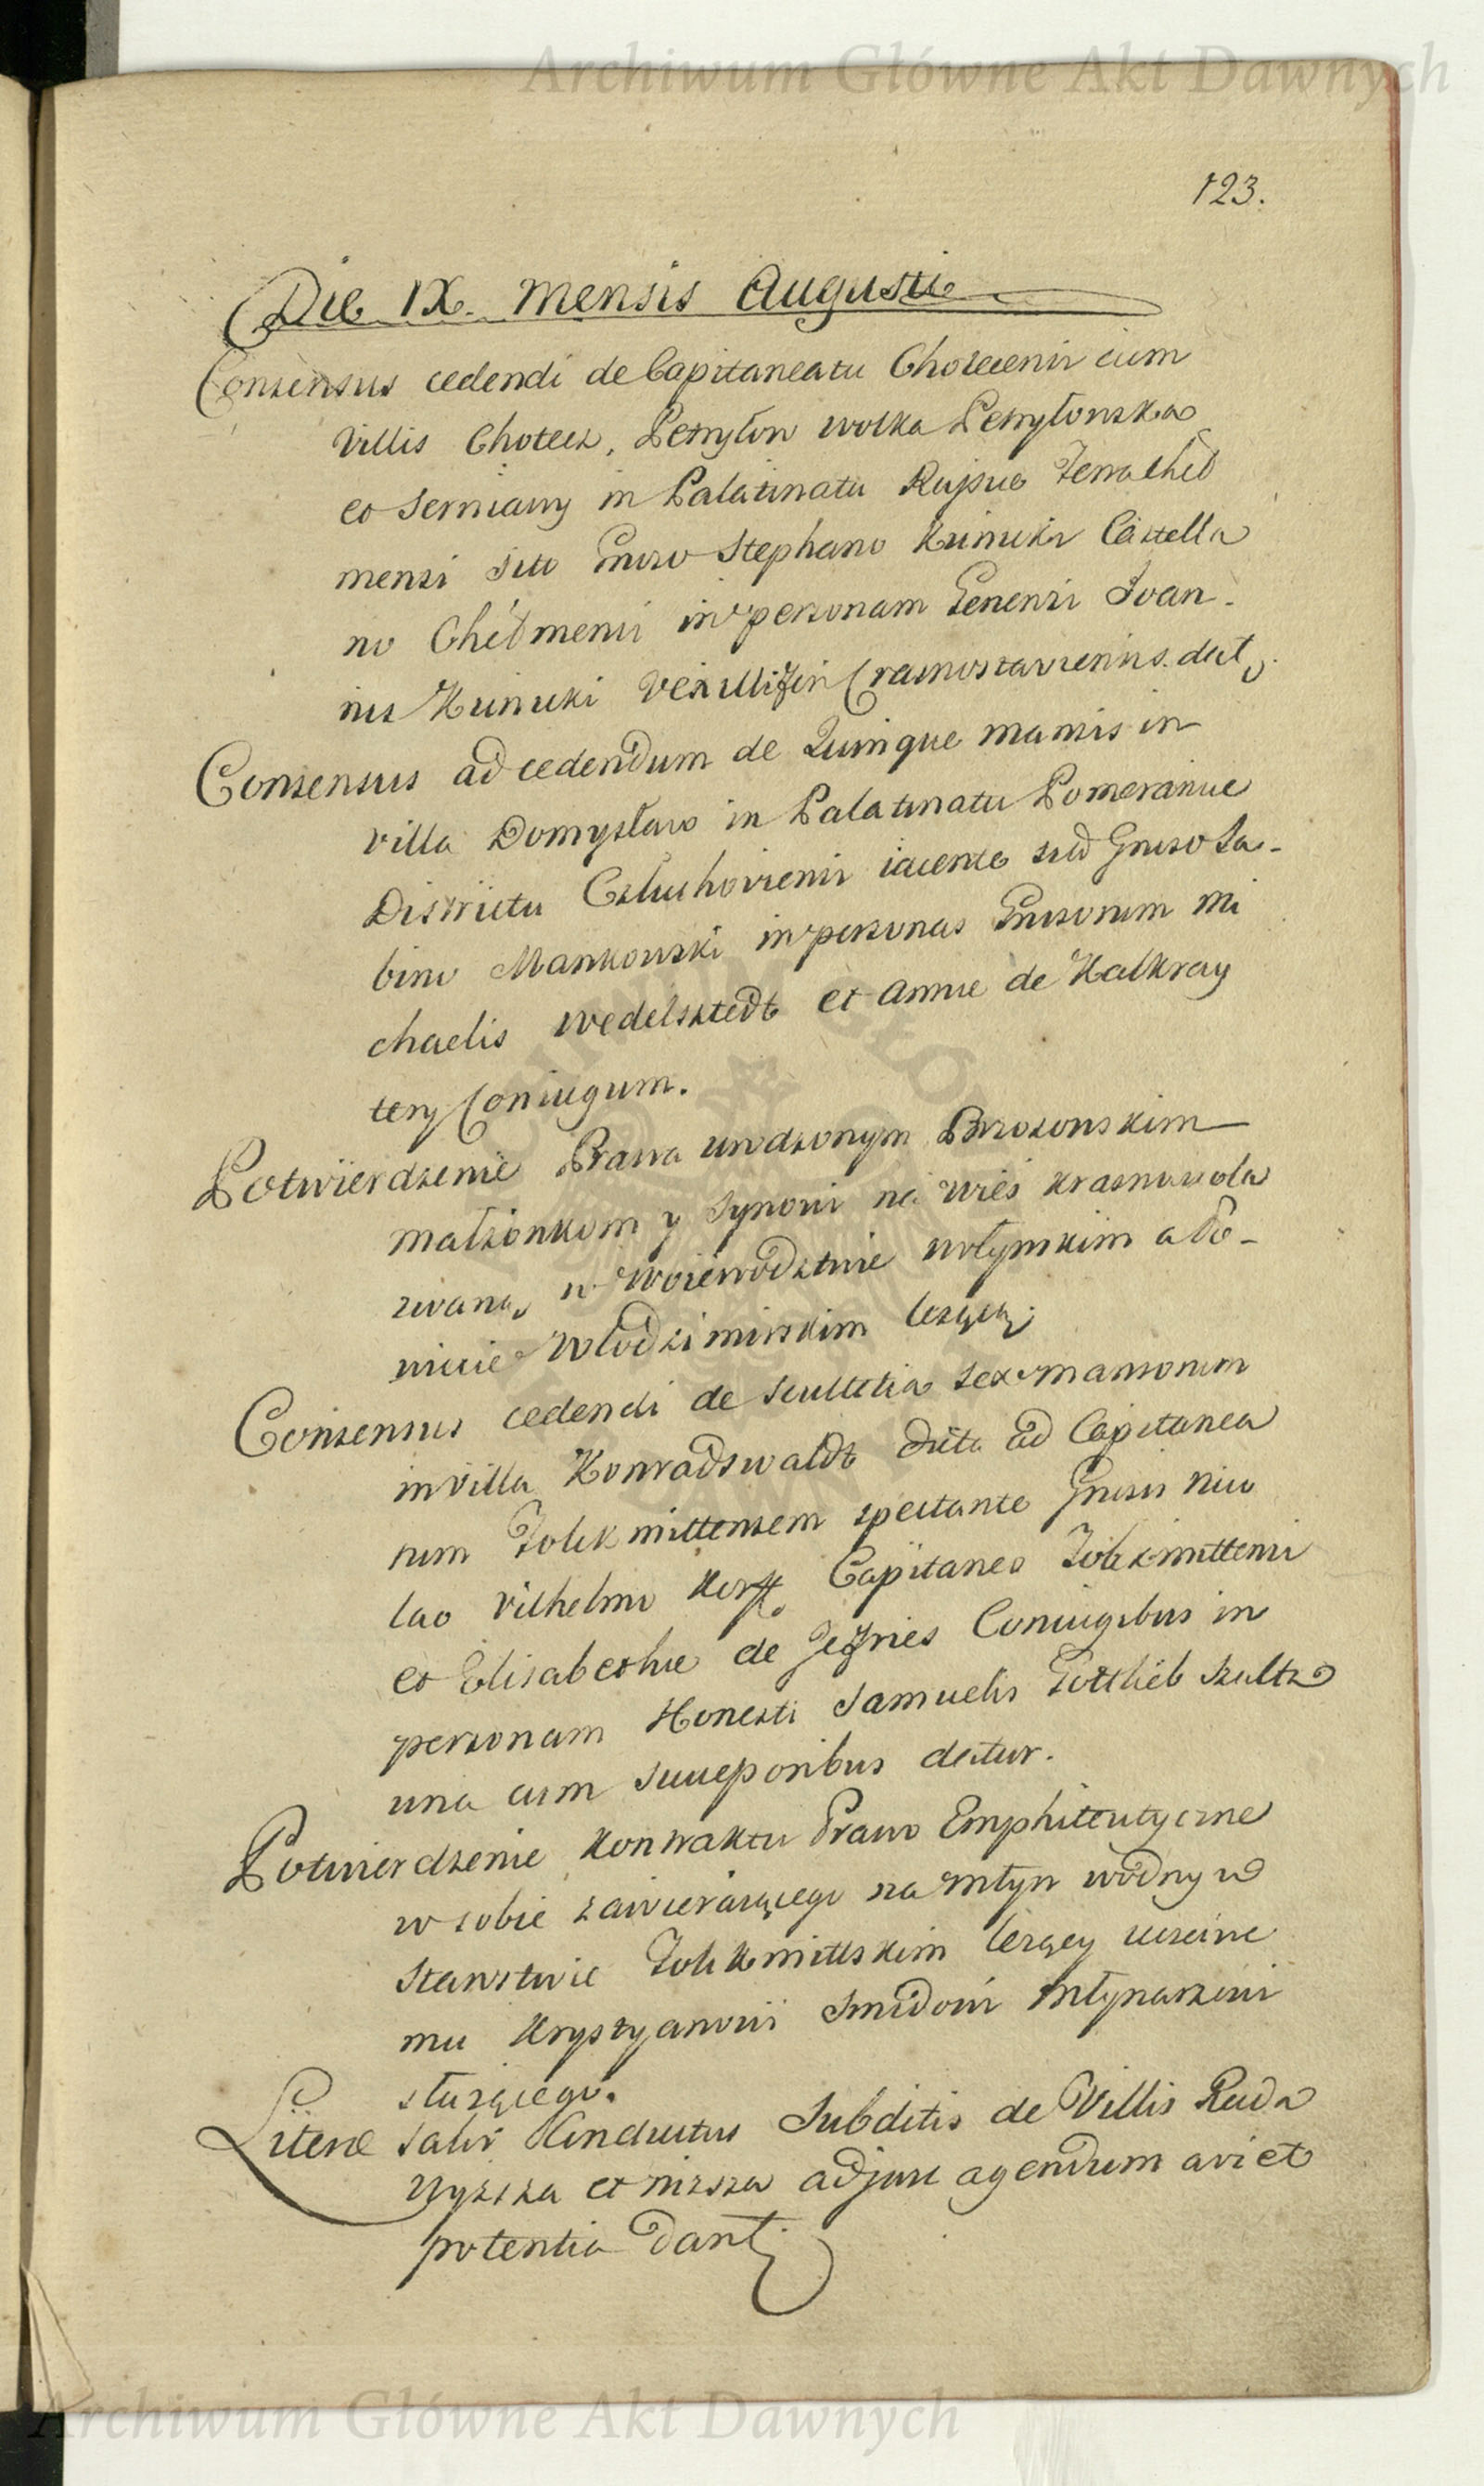 Archiwum Główne Akt Dawnych
123.
Die IX. Mensis Augusti
Consensus cedendi de Capitaneatu Chotecensi cum
Villis Choteck, Petryłow wolka Petryłonska
et Serniawy in Palatinatu Russiae Terra Chel
mensi sito Gnroso Stephano Kunicki Castella
no Chełmensi in personam Generosi Ioan-
nis Kunicki Vexilliferi Crasnostaviensis datr.
Consensus ad cedendum de Quinque mansis in
villa Domysław in Palatinatu Pomeraniae
Districtu Człuchoviensi iacente sub Gnroso Sa-
bino Mankowski in personas Gnrosorum Mi
chaelis Wedelsztedt et Annae de Kalkray
tery Coniugum.
Potwierdzenie Prawa urodzonym Brzozowskim
małżonkom y Synowi na Wieś Krasnawola
zwaną w Woiewodztwie wołynskim a Po-
wiecie Włodzimirskim leżącą
Consensus cedendi de Scultetia sex mansorum
in villa Konradswaldt dicta ad Capitanea
tum Tolkmittensem spectante Gnrosis Nico
lao Vilhelmo Korff Capitaneo Tolkmittensi
et Elisabethae de Jefries Coniugibus in
personam Honesti Samuelis Gottlieb Szultz
una cum Succeporibus datur.
Potwierdzenie Kontraktu Prawo Emphiteutyczne
w sobie zawieraiącego na Młyn wodny w
Starostwie Tolkmittskim leżący uczciwe
mu Krystyanowi Smidowi Młynarzowi
służącego.
Literae Salvi Conductus Subditis de Villis Ruda
Wyższa et niższa ad jure agendum avi et
potentia Dant
Archiwum Główne Akt Dawnych